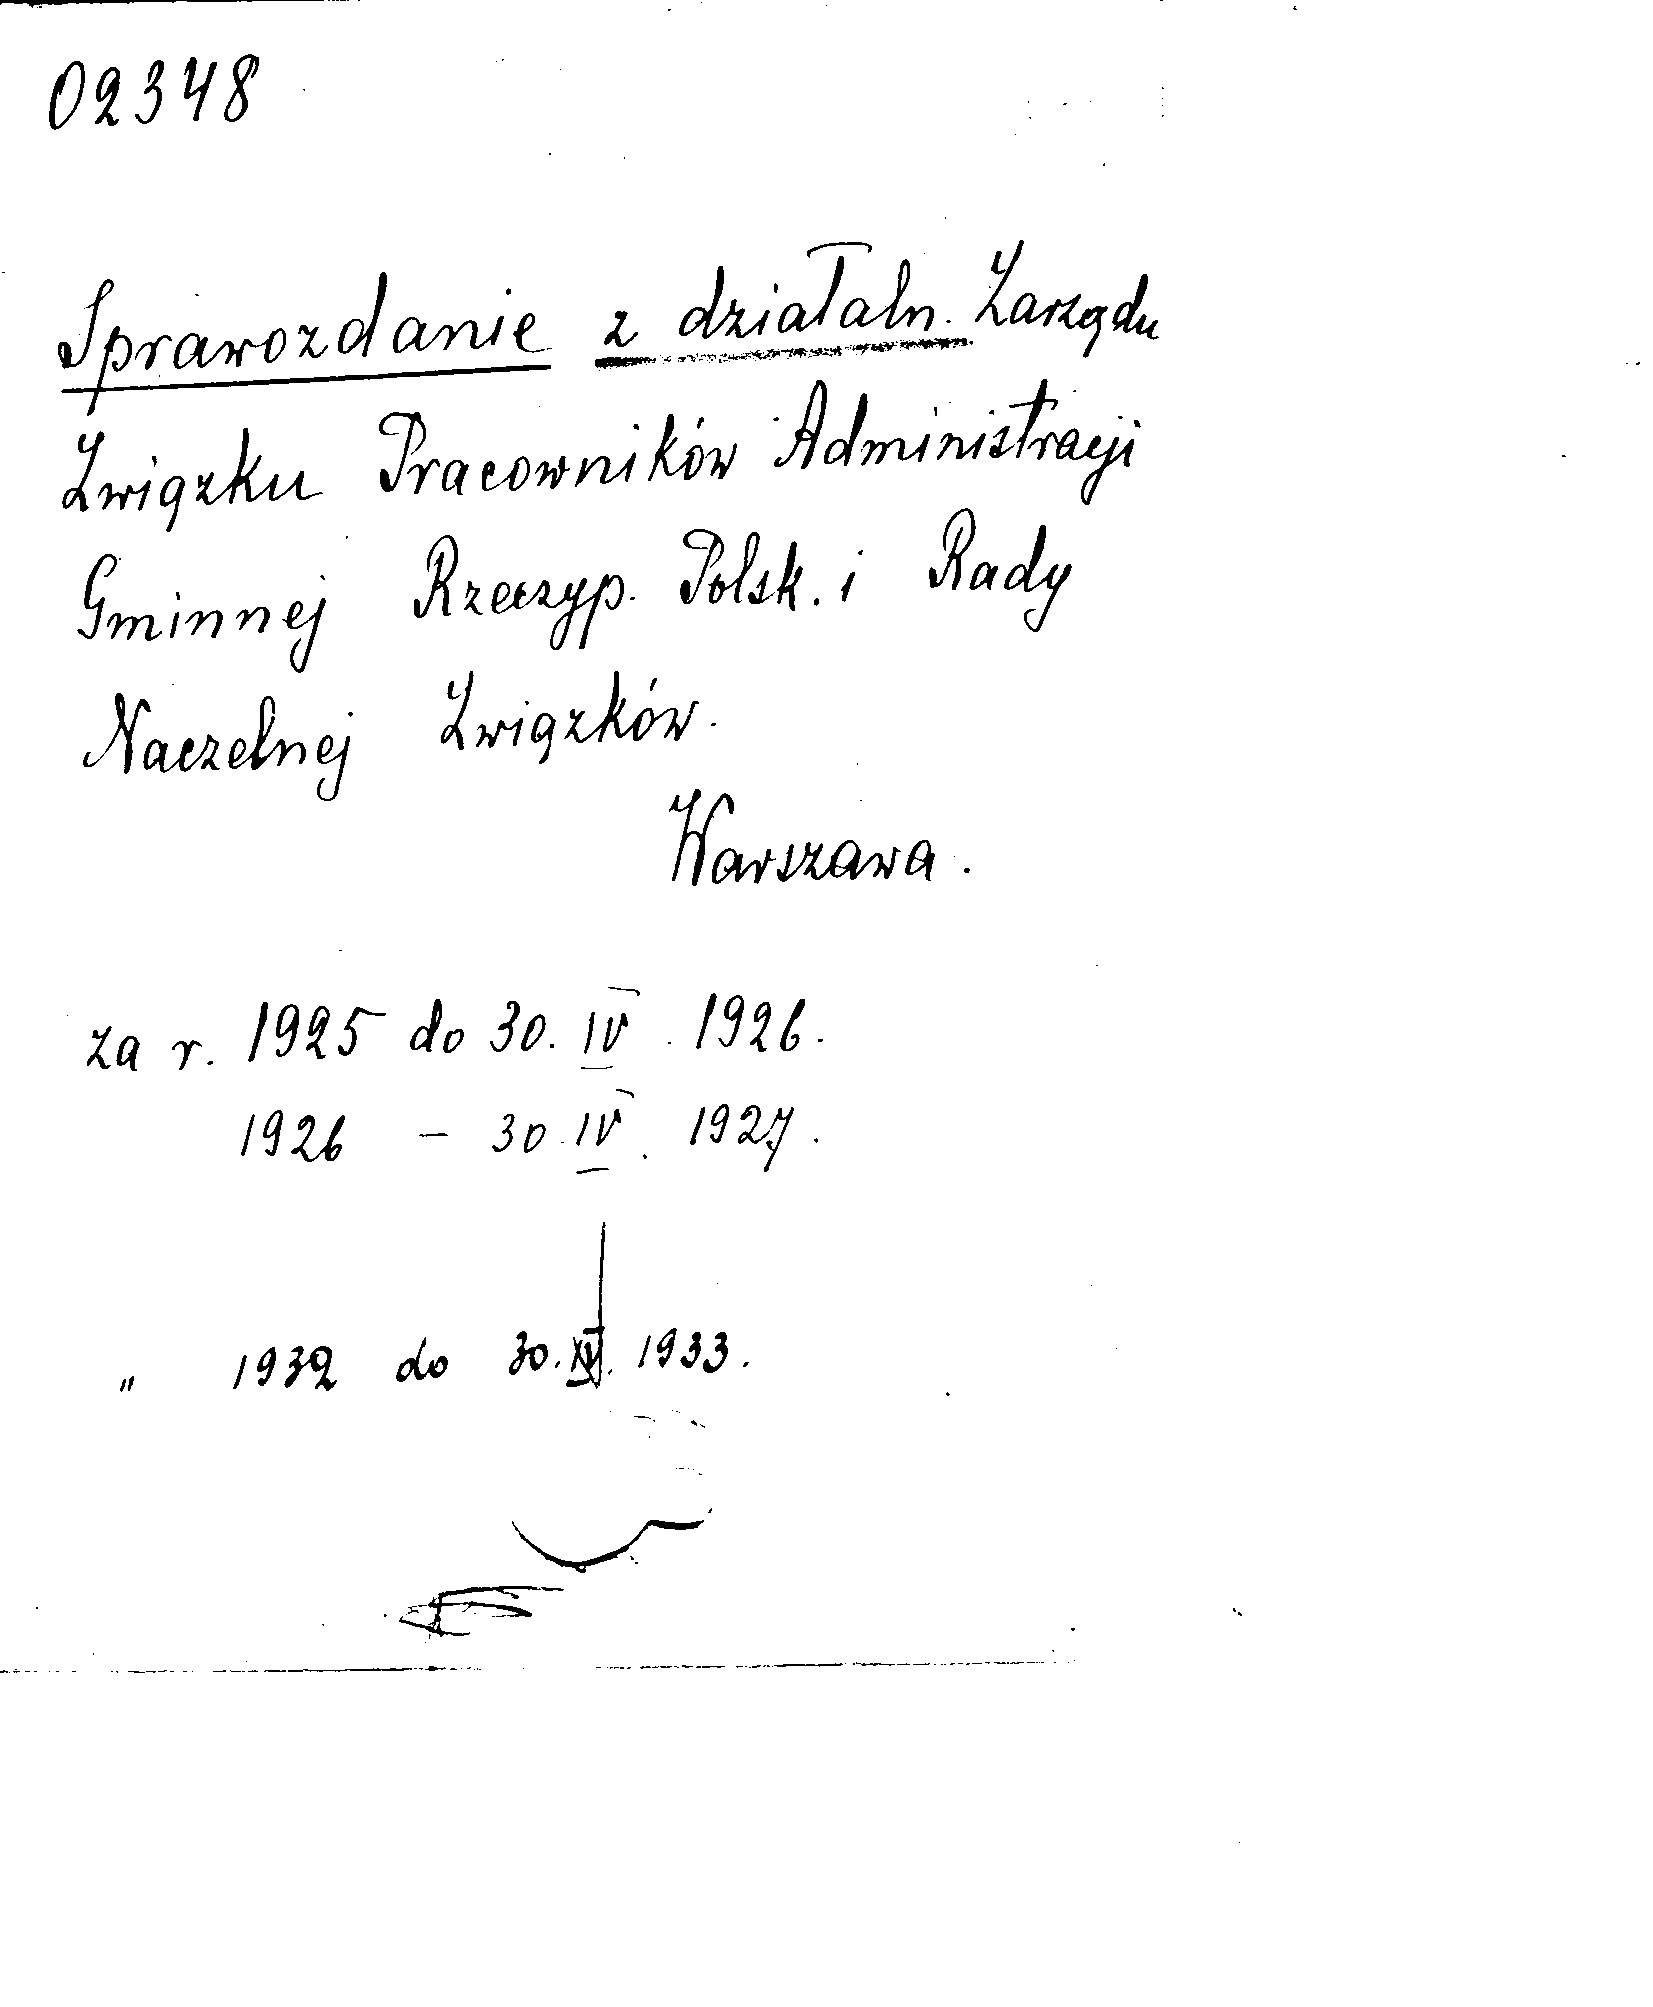 02348
Sprawozdanie z działaln. Zarządu
Związku Pracowników Administracji
Gminnej Rzeczyp. Polsk. i Rady
Naczelnej Związków.
Warszawa.
za r. 1925 do 30. IV. 1926.
1926 - 30. IV. 1927.
" 1932 do 30. 1933.